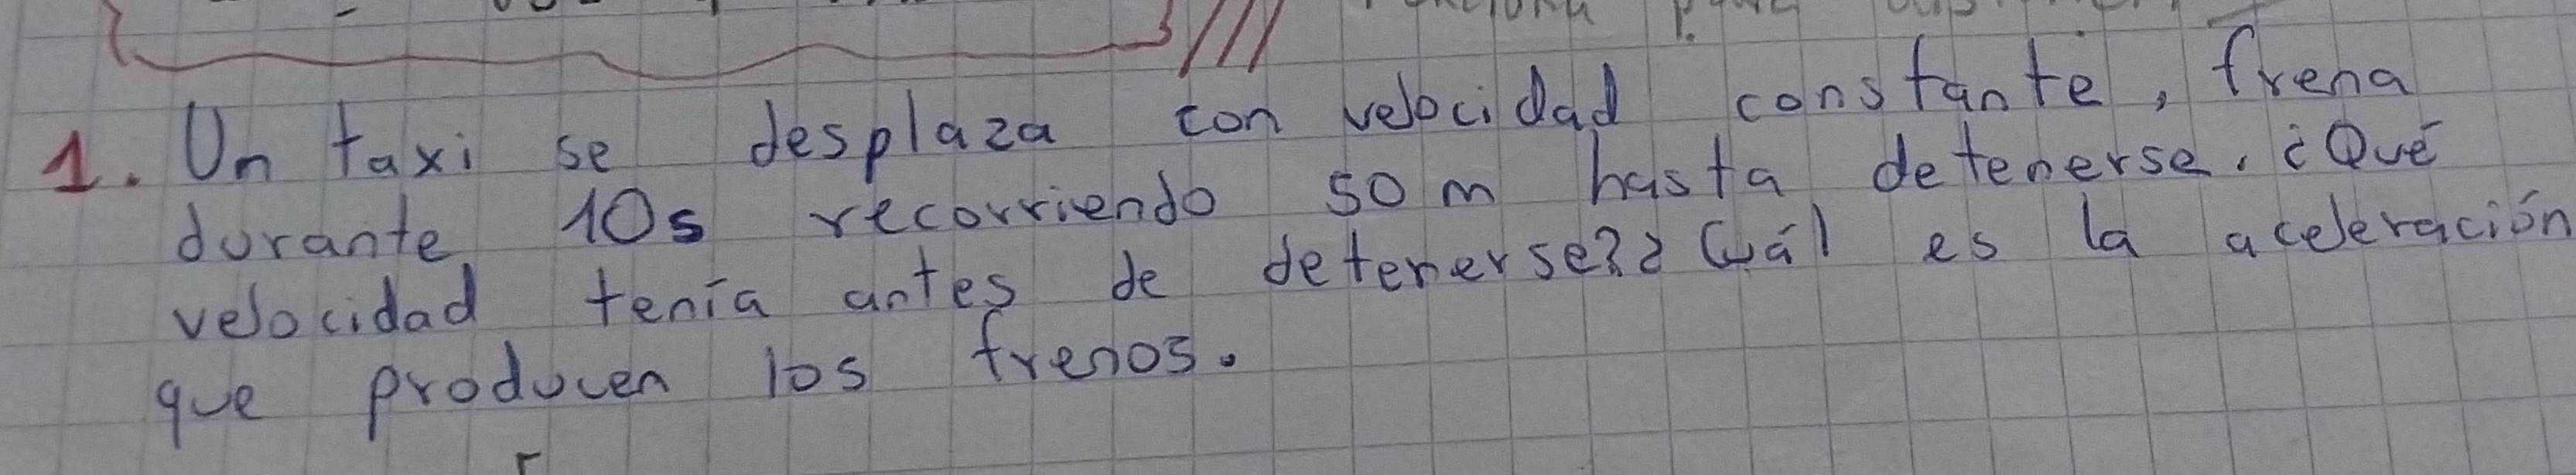 1. Un taxi se desplaza con velocidad constante, frena
durante 10s recorriendo 50 m hasta detenerse. ¿Qué
velocidad tenía antes de detenerse? ¿Cuál es la aceleración
que producen los frenos.